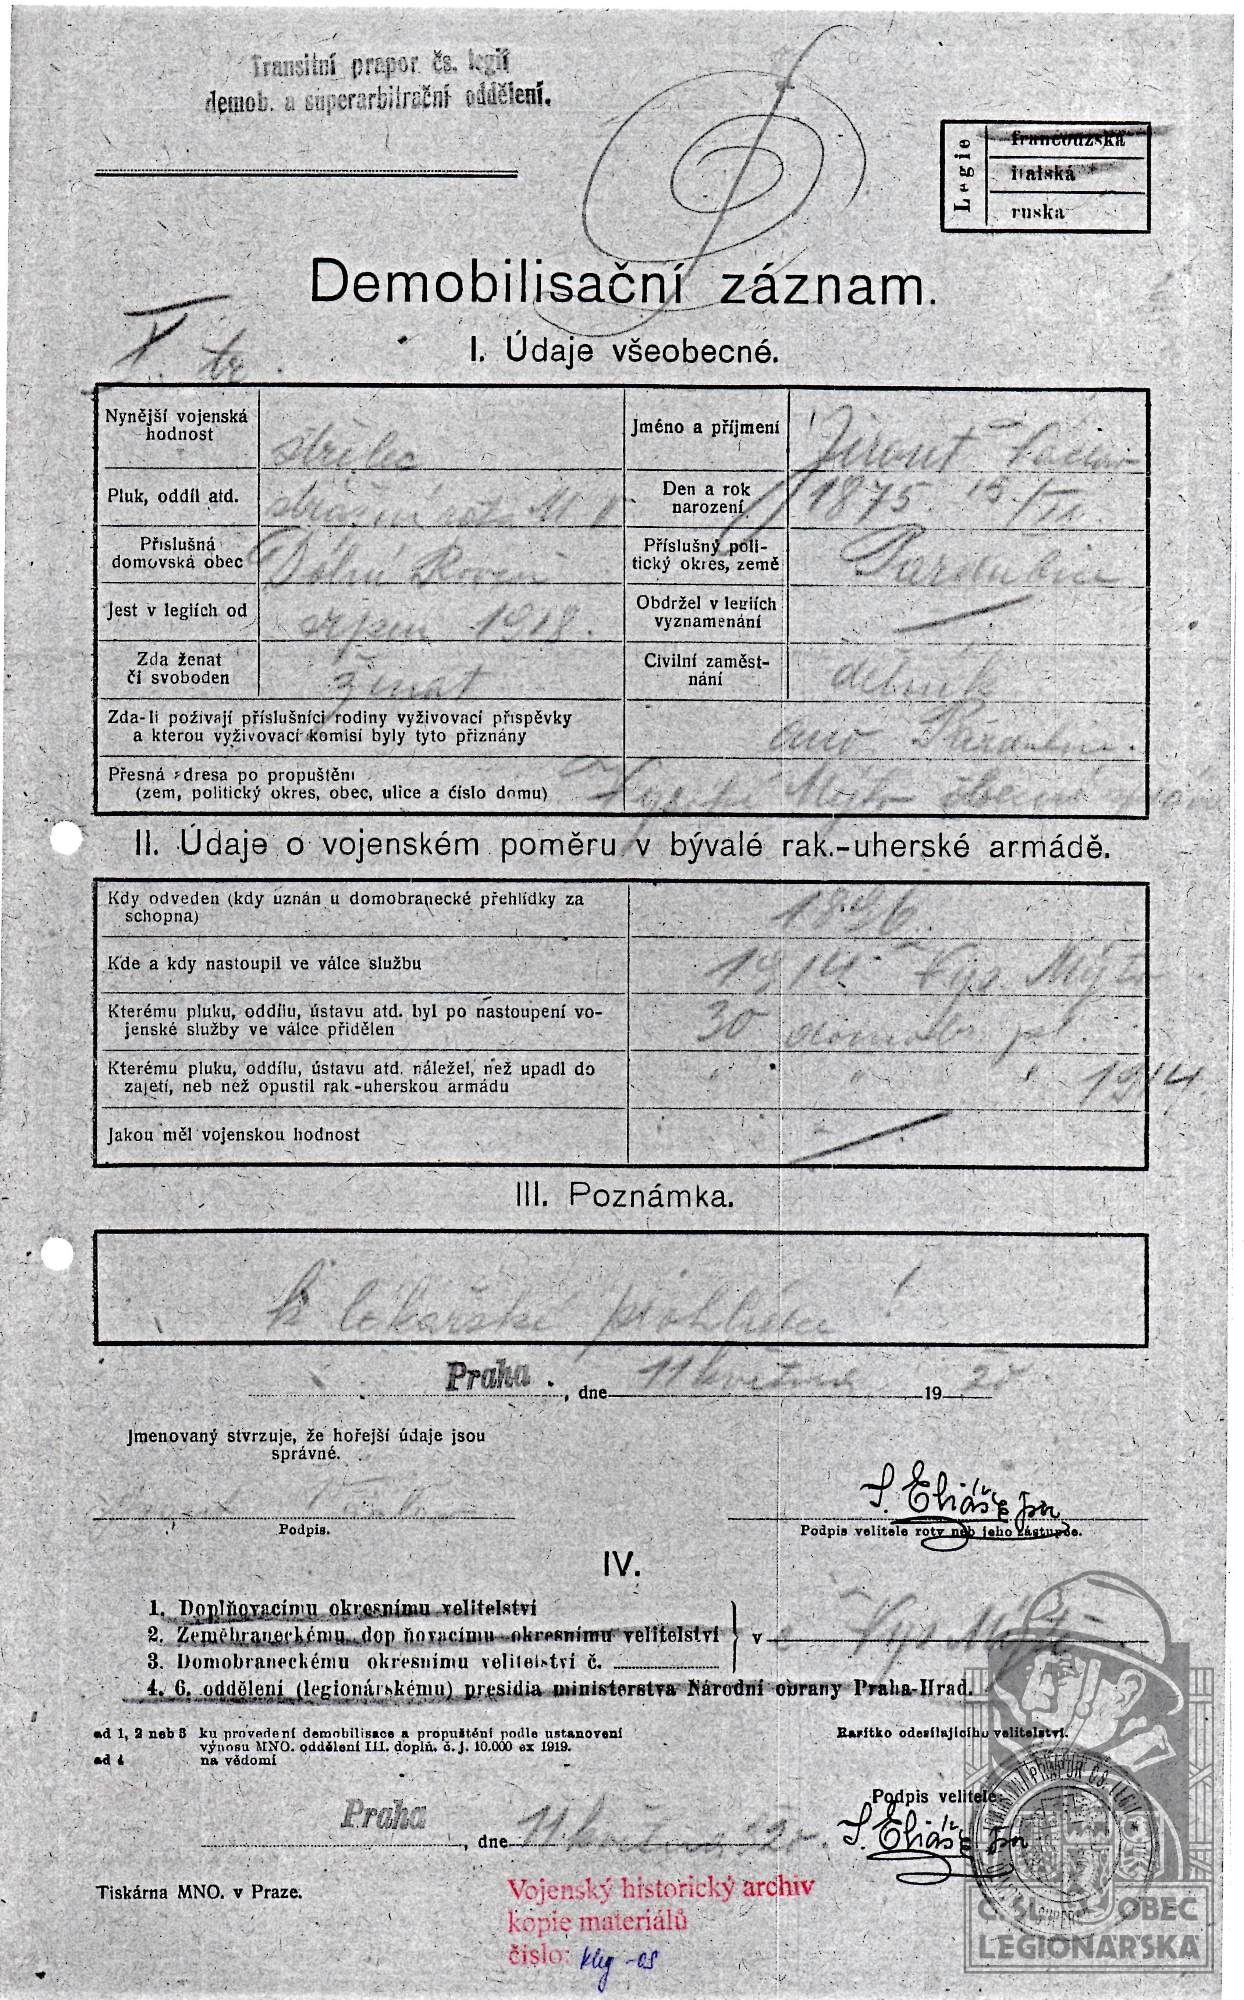 Transitní prapor čs. legií
demob. a superarbitrační oddělení.
Legie
francouzská
italská
ruská
Demobilisační záznam.
I. Údaje všeobecné.
V. tr.
Nynější vojenská hodnost
střelec
Jméno a příjmení
Jirout Václav
Pluk, oddíl atd.
strážní rota
Den a rok narození
1875 15/VII.
Příslušná domovská obec
Dolní Roveň
Příslušný politický okres, země
Pardubice
Jest v legiích od
srpen 1918.
Obdržel v legiích vyznamenání
Zda ženat či svoboden
ženat
Civilní zaměstnání
dělník
Zda-li požívají příslušníci rodiny vyživovací příspěvky
a kterou vyživovací komisí byly tyto přiznány
ano Pardubice.
Přesná adresa po propuštění
(zem, politický okres, obec, ulice a číslo domu)
Vysoké Mýto obecná
II. Údaje o vojenském poměru v bývalé rak.-uherské armádě.
Kdy odveden (kdy uznán u domobranecké přehlídky za
schopna)
1896.
Kde a kdy nastoupil ve válce službu
1914. Vys. Mýto
Kterému pluku, oddílu, ústavu atd. byl po nastoupení vo-
jenské služby ve válce přidělen
30 domobr. pl.
Kterému pluku, oddílu, ústavu atd. náležel, než upadl do
zajetí, neb než opustil rak.-uherskou armádu
" " " 1914.
Jakou měl vojenskou hodnost
III. Poznámka.
K lékařské prohlídce!
Praha., dne 11 května 1920
Jmenovaný stvrzuje, že hořejší údaje jsou
správné.
Podpis.
S. Eliáš
Podpis velitele roty neb jeho zástupce.
IV.
1. Doplňovacímu okresnímu velitelství
2. Zeměbraneckému doplňovacímu okresnímu velitelství
3. Domobraneckému okresnímu velitelství č.
v Vys. Mýtě
4. 6. oddělení (legionářskému) presidia ministerstva Národní obrany Praha-Hrad.
ad 1, 2 neb 3 ku provedení demobilisace a propuštění podle ustanovení
výnosu MNO. oddělení III. doplň. č. j. 10.000 ex 1919.
ad 4 na vědomí
Razítko odesílajícího velitelství.
Podpis velitele:
S. Eliáš
Praha, dne 11 května 20.
Tiskárna MNO. v Praze.
Vojenský historický archiv
kopie materiálů
číslo: kleg-os
Č. SL. OBEC
LEGIONÁŘSKÁ